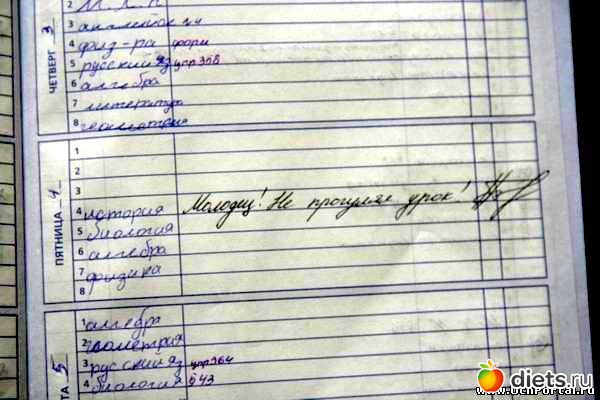 2 М.Х.К
3 английск
4 физ-ра форм
5 русский яз упр 306
6 алгебра
7 литература
8 геометрия
ЧЕТВЕРГ 3
1
2
3
4 история Молодец! Не прогулял урок!
5 биология
6 алгебра
7 физика
8
ПЯТНИЦА 4
1 алгебра
2 геометрия
3 русский яз упр 364
4 биология § 43
ТА 5
diets.ru
www.UchPortal.ru